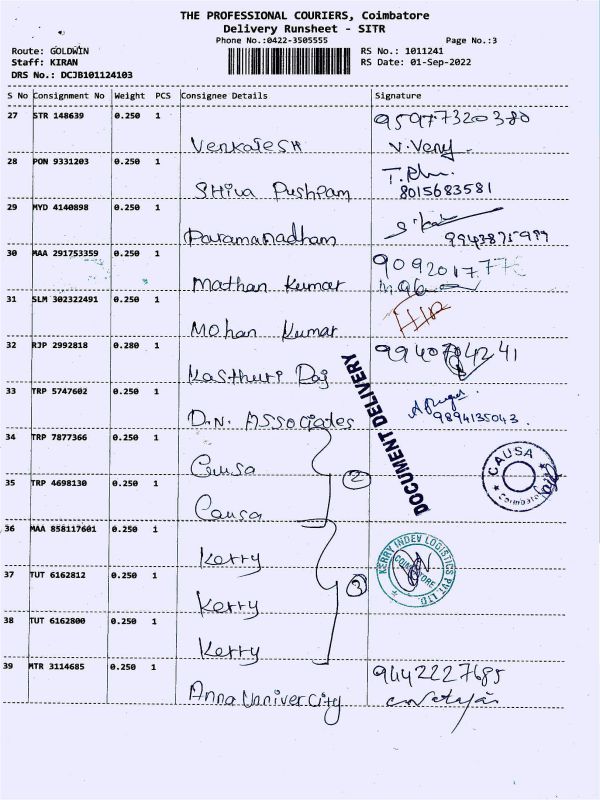 THE PROFESSIONAL COURIERS, Coimbatore
Delivery Runsheet - SITR
Phone No.:0422-3505555 Page No.:3
Route: GOLDWIN RS No.: 1011241
Staff: KIRAN RS Date: 01-Sep-2022
DRS No.: DCJB101124103
S No Consignment No Weight PCS Consignee Details Signature
27 STR 148639 0.250 1 95977320380
Venkatesh V. Veny
28 PON 9331203 0.250 1
Shiva Pushpam 8015683581
29 MYD 4140898 0.250 1
Paramanadham 9943875999
30 MAA 291753359 0.250 1
Mathan Kumar
31 SLM 302322491 0.250 1
Mohan Kumar
32 RJP 2992818 0.280 1
Kasthuri Raj
DOCUMENT DELIVERY
33 TRP 5747602 0.250 1
D.N. Associates 9894135043.
34 TRP 7877366 0.250 1
Causa
CAUSA
Coimbatore
2
35 TRP 4698130 0.250 1
Causa
36 MAA 858117601 0.250 1
Kerry
KERRY INDEV LOGISTICS PVT. LTD.
COIMBATORE
3
37 TUT 6162812 0.250 1
Kerry
38 TUT 6162800 0.250 1
Kerry
39 MTR 3114685 0.250 1 9442227685
Anna Univercity